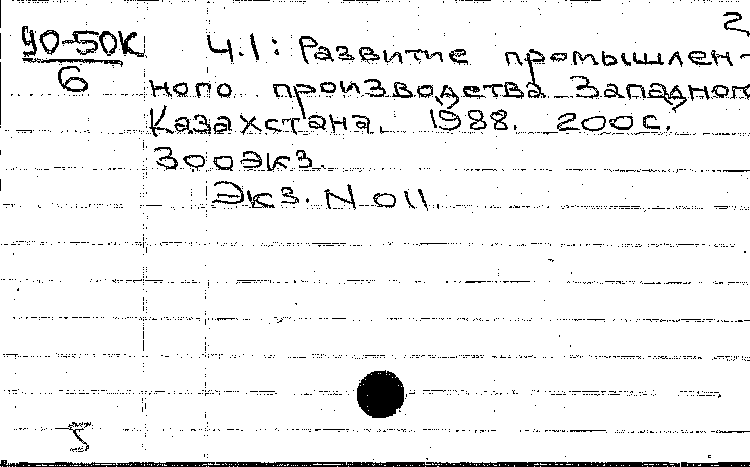 2
У0-50К
6
Ч.1: Развитие промышлен-
ного производства Западного
Казахстана. 1988. 200 с.
300экз.
Экз. N 011.